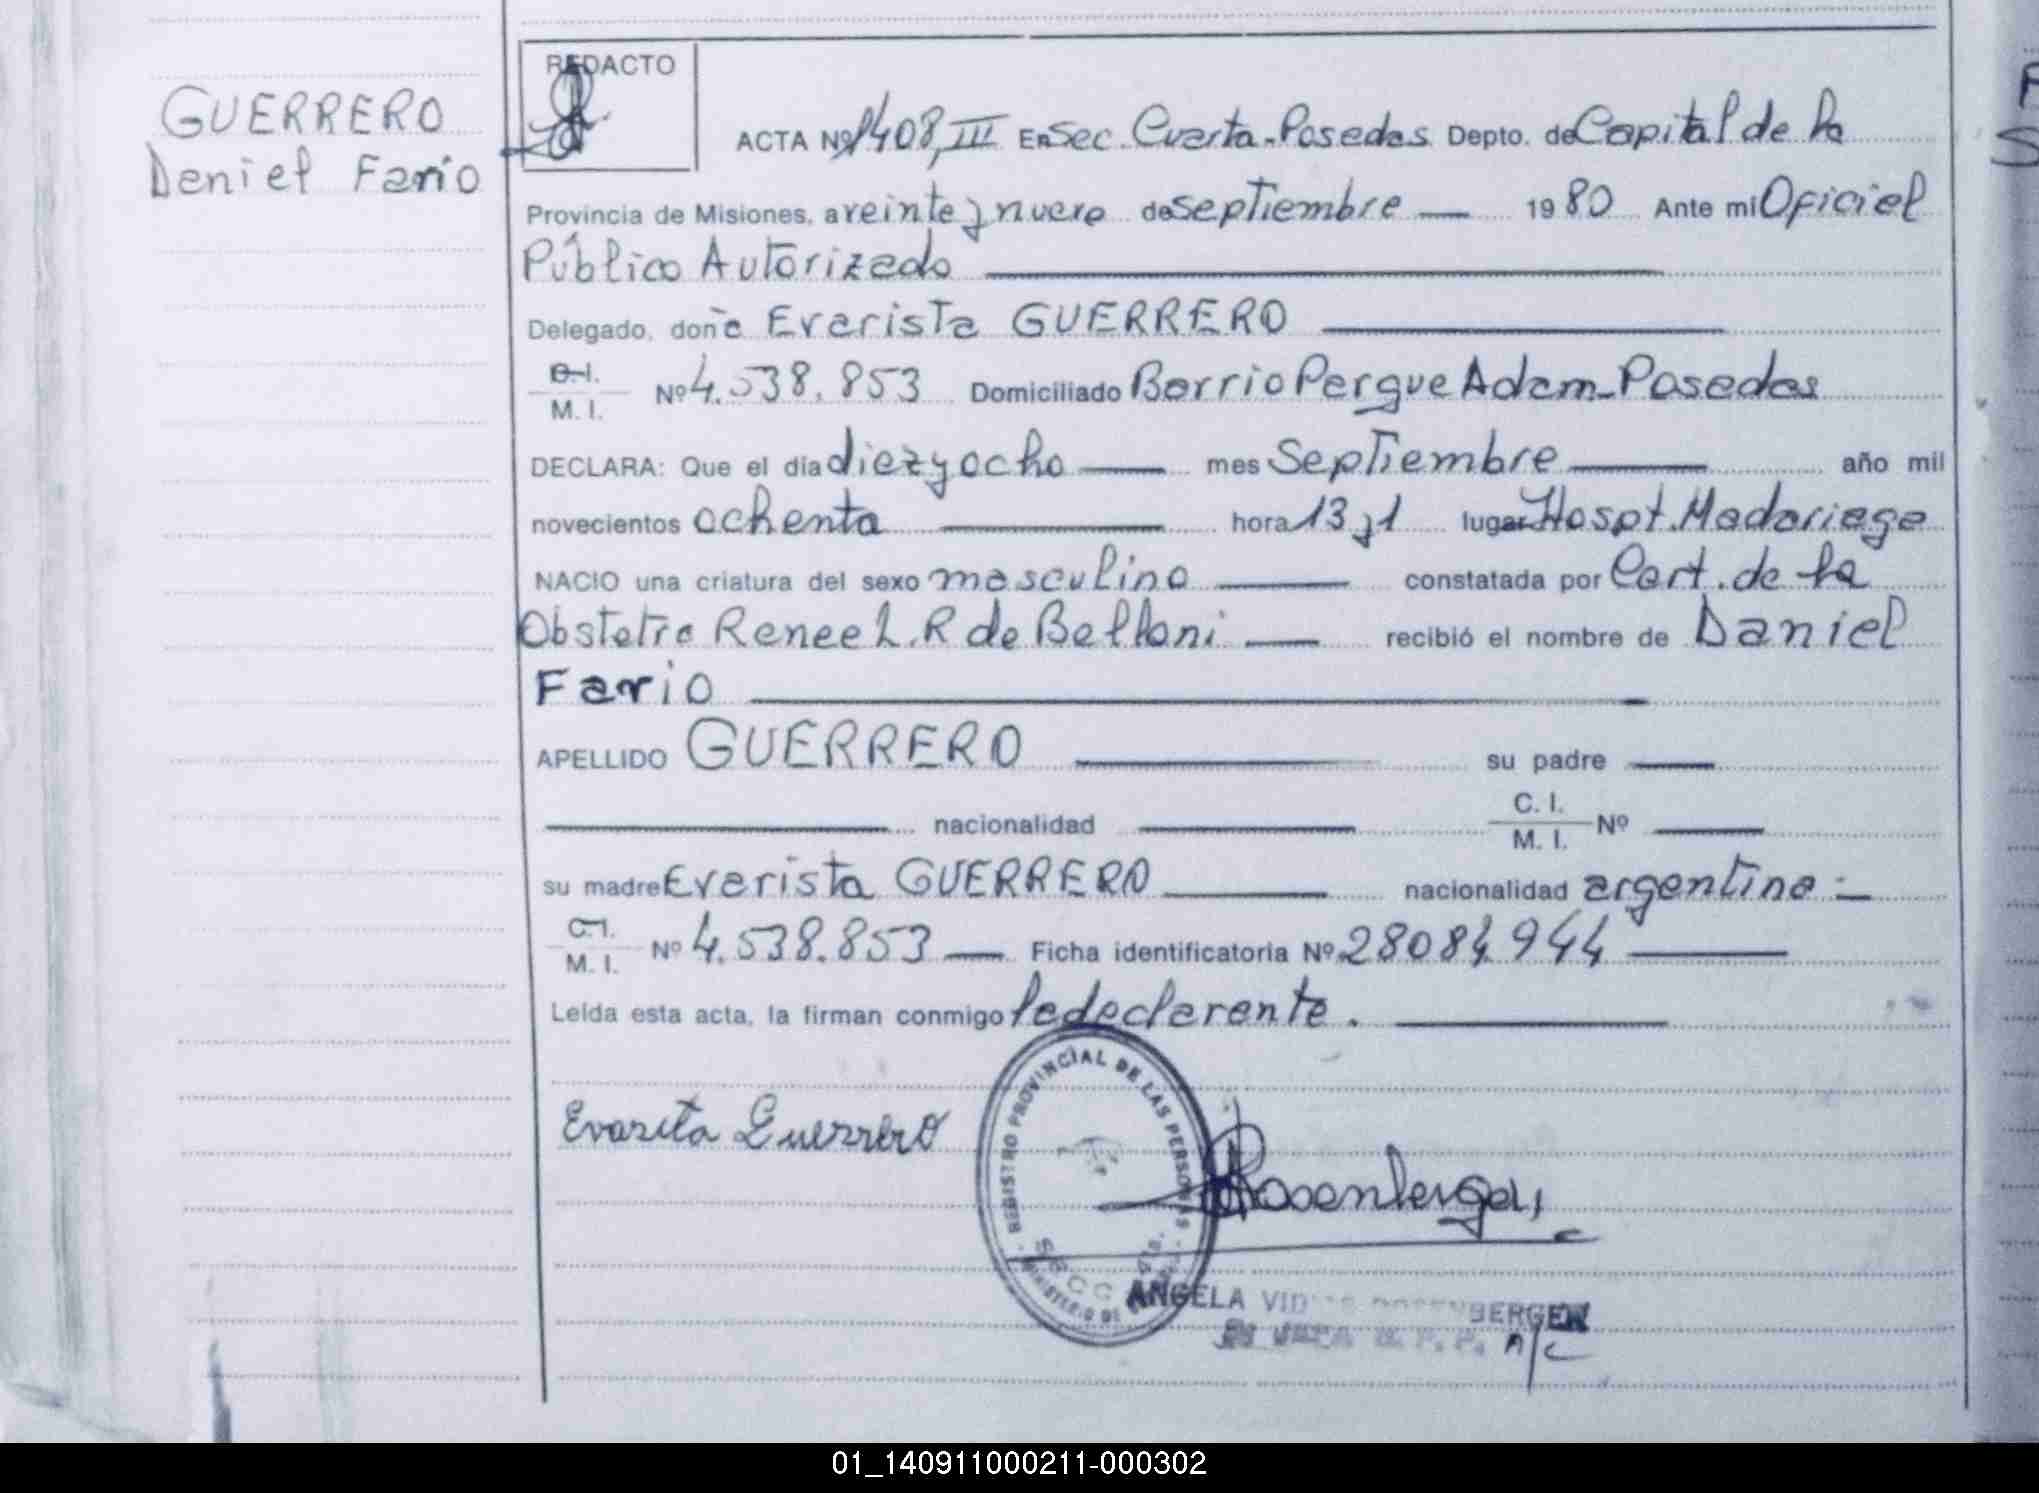 GUERRERO
Daniel Fario
REDACTO
ACTA Nº 1408, III En Sec. Cuarta-Posadas Depto. de Capital de la
Provincia de Misiones, a veinte y nueve de septiembre — 1980 Ante mi Oficial
Público Autorizado
Delegado, doña Evarista GUERRERO
C.I.
M. I. Nº 4.538.853 Domiciliado Barrio Parque Adam-Posadas
DECLARA: Que el día diez y ocho — mes Septiembre — año mil
novecientos ochenta — hora 13 y 1 lugar Hospt. Madariaga
NACIO una criatura del sexo masculino — constatada por Cert. de la
Obstetra Renee L. R de Belloni — recibió el nombre de Daniel
Fario
APELLIDO GUERRERO — su padre —
— nacionalidad — C. I.
M. I. Nº —
su madre Evarista GUERRERO — nacionalidad argentina =
C.I.
M. I. Nº 4.538.853 — Ficha identificatoria Nº 28084944 —
Leída esta acta, la firman conmigo la declarante. —
Evarista Guerrero
REGISTRO PROVINCIAL DE LAS PERSONAS
SECC 4ta.
MINISTERIO DE
Rosenberger
ANGELA ROSENBERGER
R. P. P. A/C
01_140911000211-000302